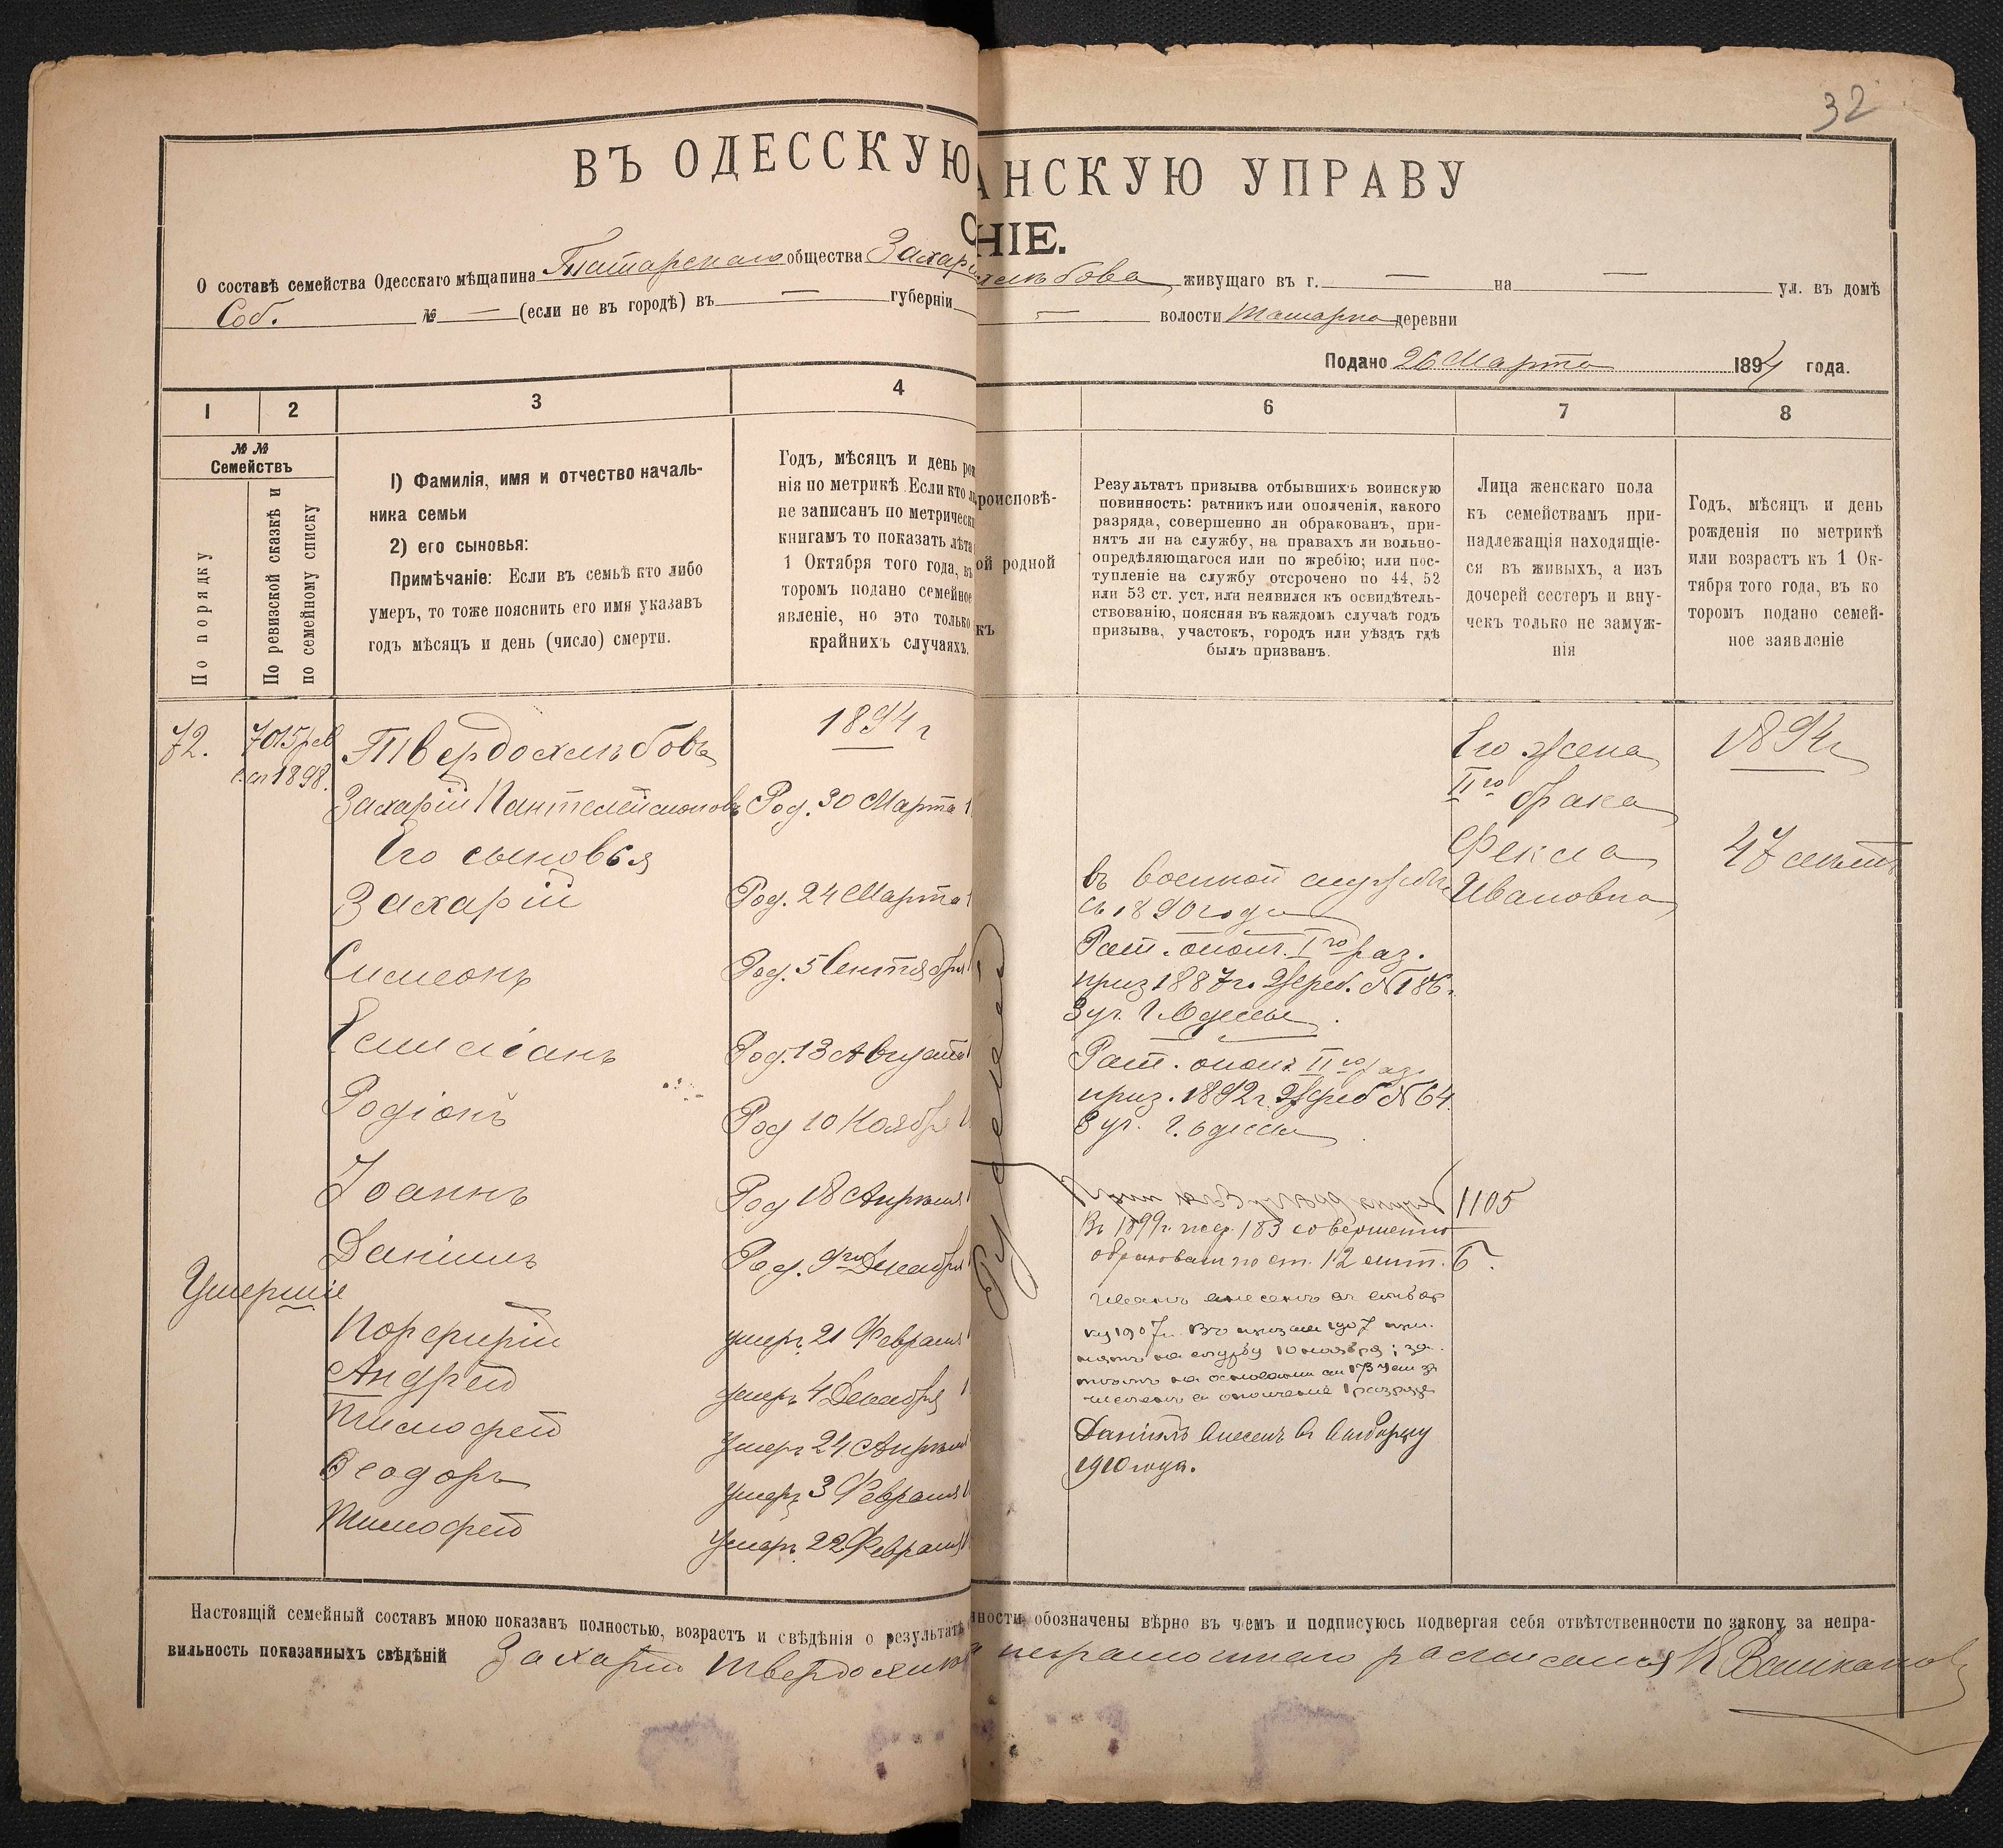 32
ВЪ ОДЕССКУЮ
АНСКУЮ УПРАВУ
НІЕ.
О составѣ семейства Одесскаго мѣщанина Татарскаго общества Захарі
хлѣбова живущаго въ г. — на — ул. въ домѣ
Соб. № — (если не въ городѣ) въ — губерніи
— волости Татарка деревни
Подано 26 Марта 1894 года.
1 2 3 4
6 7 8
№ № Семействъ
По порядку
По ревизской сказкѣ и по семейному списку
1) Фамилія, имя и отчество началь-
ника семьи
2) его сыновья:
Примѣчаніе: Если въ семьѣ кто либо
умеръ, то тоже пояснить его имя указавъ
годъ мѣсяцъ и день (число) смерти.
Годъ, мѣсяцъ и день рож
нія по метрикѣ. Если кто ли
не записанъ по метрическ
книгамъ то показать лѣта
1 Октября того года, въ
торомъ подано семейное
явленіе, но это только
крайнихъ случаяхъ.
роисповѣ-
ой родной
къ
Результатъ призыва отбывшихъ воинскую
повинность: ратникъ или ополченія, какого
разряда, совершенно ли обракованъ, при-
нятъ ли на службу, на правахъ ли вольно-
опредѣляющагося или по жребію; или пос-
тупленіе на службу отсрочено по 44, 52
или 53 ст. уст. или неявился къ освидѣтель-
ствованію, поясняя въ каждомъ случаѣ годъ
призыва, участокъ, городъ или уѣздъ гдѣ
былъ призванъ.
Лица женскаго пола
къ семействамъ при-
надлежащія находящіе-
ся въ живыхъ, а изъ
дочерей сестеръ и вну-
чекъ только не замуж-
нія
Годъ, мѣсяцъ и день
рожденія по метрикѣ
или возрастъ къ 1 Ок-
тября того года, въ ко
торомъ подано семей-
ное заявленіе
72.
7015 рев
с. сп 1898.
Твердохлѣбовъ
1894 г
Захарій Пантелеймоновъ Род. 30 Марта 1
Его сыновья
Захарій Род. 24 Марта 1
Симеонъ Род. 5 Сентября
Емиліанъ Род. 13 Августа
Родіонъ Род 10 Ноября
Іоаннъ Род 18 Апрѣля
Даніилъ Род. 9го Декабря
Умершіе
Порфирій умеръ 21 Февраля
Андрей умеръ 4 Декабря
Тимофей умеръ 24 Апрѣля
Ѳеодоръ умеръ 3 Февраля
Тимофей умеръ 22 Февраля
Его жена
IIго брака
Фекла
Ивановна
1894 г
47 лѣтъ
въ военной службѣ
съ 1890 года
Рат. ополч. Iго раз.
приз 1887 г. Жреб. № 186.
3 уч. г. Одессы.
Рат. ополч. IIго раз.
приз. 1892 г. Жреб № 64.
3 уч. г. Одессы
1105
Въ 1899 г. жер. 183 совершенно
обракованъ по ст. 12 лит. Б.
Иванъ внесенъ въ отбор
ку 1907 г. Въ призывѣ 1907 при-
нятъ на службу 10 ноября; за-
тѣмъ на основаніи
численъ въ ополченіе 1 разряда
Даніилъ внесенъ въ отборку
1910 года.
Настоящій семейный составъ мною показанъ полностью, возрастъ и свѣдѣнія о результатѣ
нности обозначены вѣрно въ чемъ и подписуюсь подвергая себя отвѣтственности по закону за непра-
вильность показанныхъ свѣдѣній Захарій Твердохлѣб
а неграмотнаго росписался